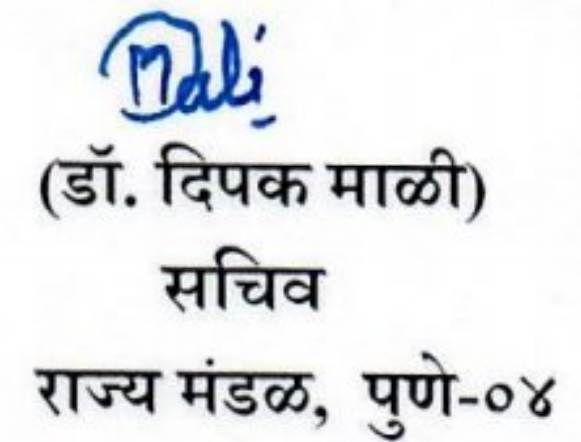 Mali
(डॉ. दिपक माळी)
सचिव
राज्य मंडळ, पुणे-०४